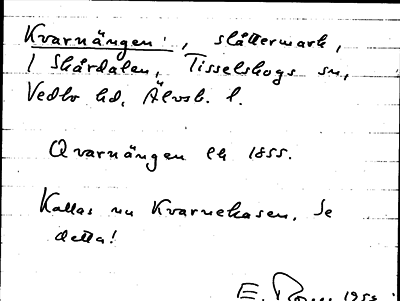 Kvarnängen, slåttermark,
i Skårdalen, Tisselskogs sn,
Vedbo hd, Älvsb. l.
Qvarnängen Lk 1855.
Kallas nu Kvarnekasen. Se
detta!
E.